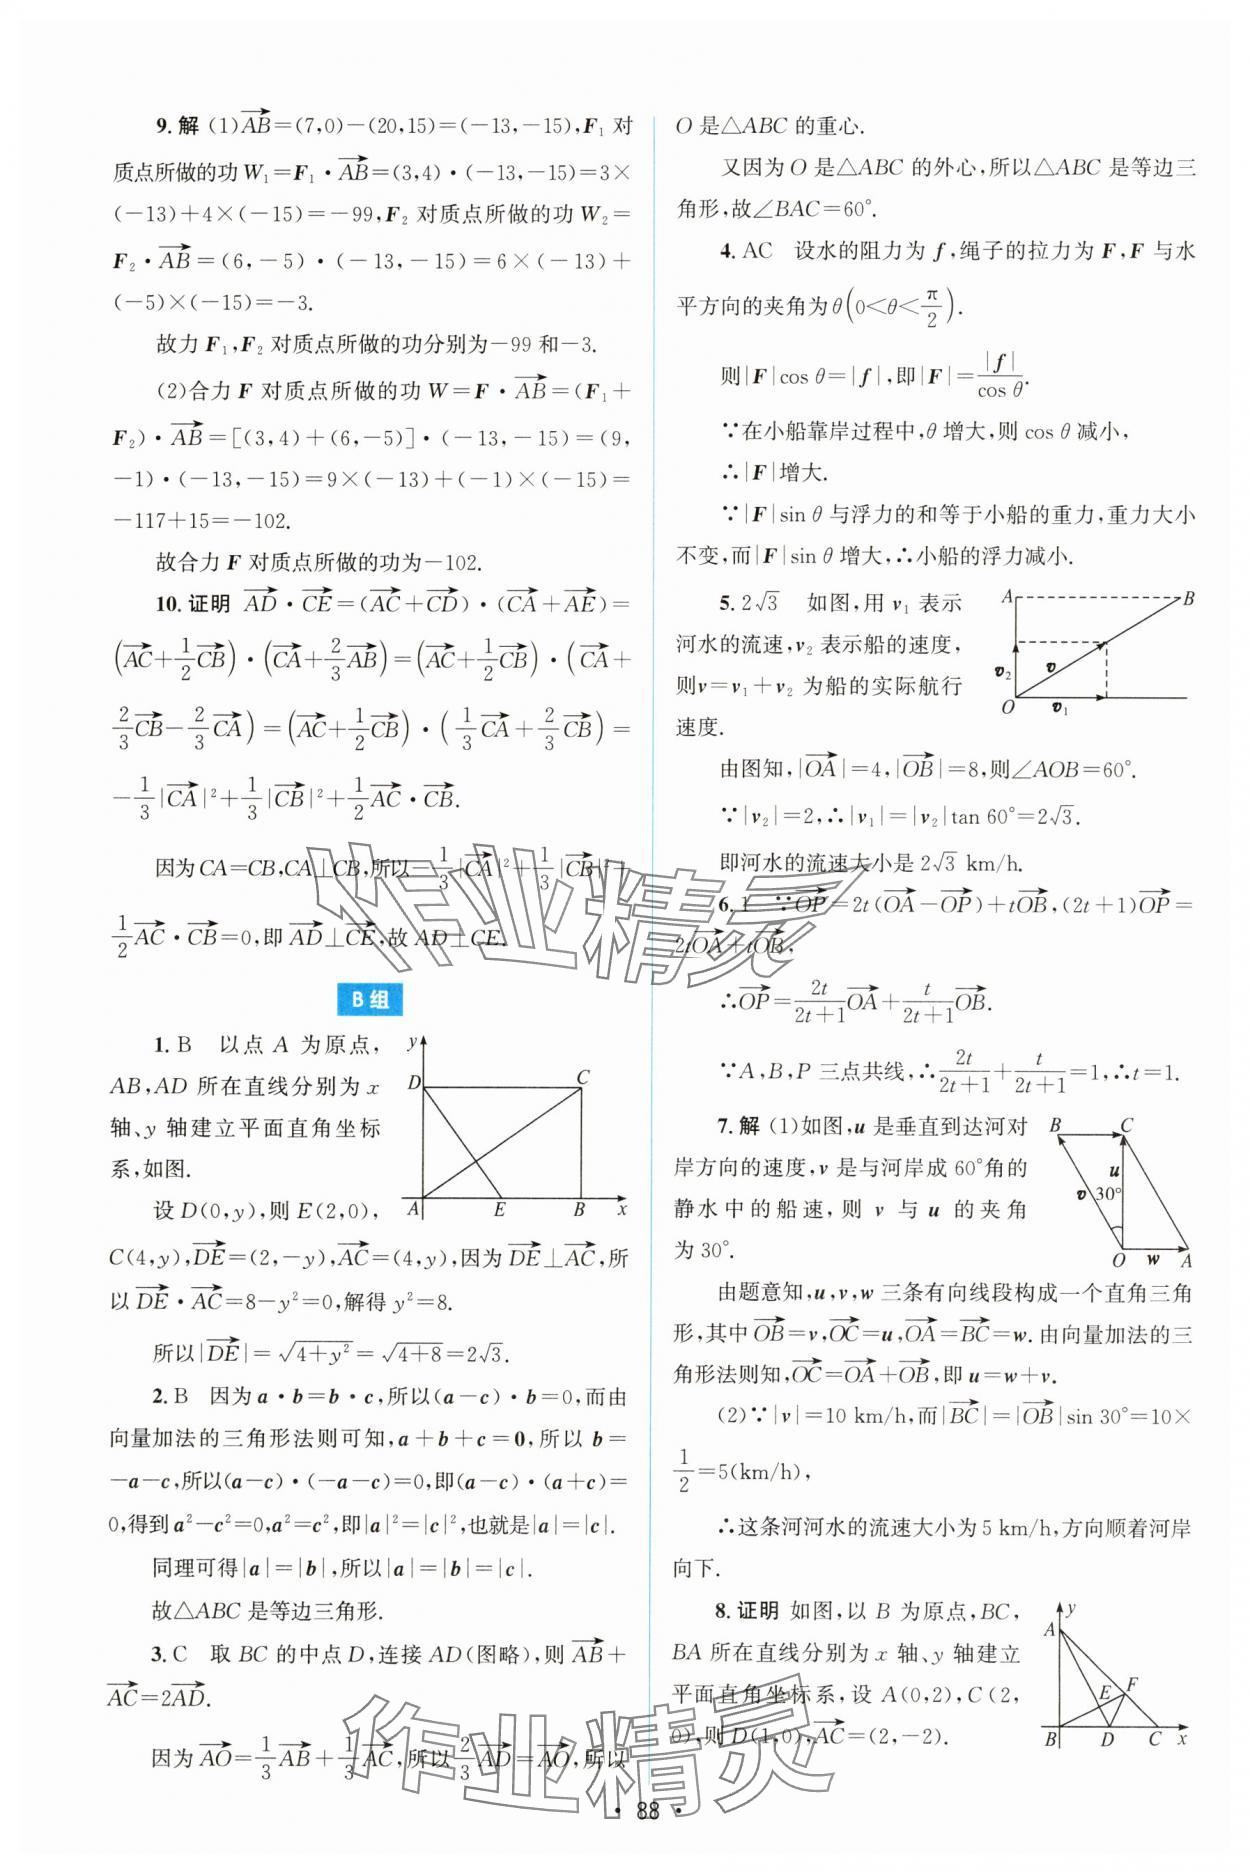 9. 解 (1)$\overrightarrow{AB}$=(7,0)-(20,15)=(-13,-15),F₁ 对
质点所做的功 W₁=F₁·$\overrightarrow{AB}$=(3,4)·(-13,-15)=3×
(-13)+4×(-15)=-99,F₂ 对质点所做的功 W₂=
F₂·$\overrightarrow{AB}$=(6,-5)·(-13,-15)=6×(-13)+
(-5)×(-15)=-3.
故力 F₁,F₂ 对质点所做的功分别为-99 和-3.
(2)合力 F 对质点所做的功 W=F·$\overrightarrow{AB}$=(F₁+
F₂)·$\overrightarrow{AB}$=[(3,4)+(6,-5)]·(-13,-15)=(9,
-1)·(-13,-15)=9×(-13)+(-1)×(-15)=
-117+15=-102.
故合力 F 对质点所做的功为-102.
10. 证明 $\overrightarrow{AD}·\overrightarrow{CE}=(\overrightarrow{AC}+\overrightarrow{CD})·(\overrightarrow{CA}+\overrightarrow{AE})=$
$(\overrightarrow{AC}+\frac{1}{2}\overrightarrow{CB})·(\overrightarrow{CA}+\frac{2}{3}\overrightarrow{AB})=(\overrightarrow{AC}+\frac{1}{2}\overrightarrow{CB})·(\overrightarrow{CA}+$
$\frac{2}{3}\overrightarrow{CB}-\frac{2}{3}\overrightarrow{CA})=(\overrightarrow{AC}+\frac{1}{2}\overrightarrow{CB})·(\frac{1}{3}\overrightarrow{CA}+\frac{2}{3}\overrightarrow{CB})=$
$-\frac{1}{3}|\overrightarrow{CA}|^2+\frac{1}{3}|\overrightarrow{CB}|^2+\frac{1}{2}\overrightarrow{AC}·\overrightarrow{CB}.$
因为 CA=CB,CA⊥CB,所以$-\frac{1}{3}|\overrightarrow{CA}|^2+\frac{1}{3}|\overrightarrow{CB}|^2+$
$\frac{1}{2}\overrightarrow{AC}·\overrightarrow{CB}=0$,即 $\overrightarrow{AD}⊥\overrightarrow{CE}$,故 AD⊥CE.
B 组
1. B 以点 A 为原点,
AB,AD 所在直线分别为 x
轴、y 轴建立平面直角坐标
系,如图.
y
D
C
A
E
B
x
设 D(0,y),则 E(2,0),
C(4,y),$\overrightarrow{DE}$=(2,-y),$\overrightarrow{AC}$=(4,y),因为 $\overrightarrow{DE}⊥\overrightarrow{AC}$,所
以 $\overrightarrow{DE}·\overrightarrow{AC}$=8-y²=0,解得 y²=8.
所以$|\overrightarrow{DE}|=\sqrt{4+y^2}=\sqrt{4+8}=2\sqrt{3}$.
2. B 因为 a·b=b·c,所以(a-c)·b=0,而由
向量加法的三角形法则可知,a+b+c=0,所以 b=
-a-c,所以(a-c)·(-a-c)=0,即(a-c)·(a+c)=
0,得到 a²-c²=0,a²=c²,即|a|²=|c|²,也就是|a|=|c|.
同理可得|a|=|b|,所以|a|=|b|=|c|.
故△ABC 是等边三角形.
3. C 取 BC 的中点 D,连接 AD(图略),则 $\overrightarrow{AB}+$
$\overrightarrow{AC}=2\overrightarrow{AD}$.
因为 $\overrightarrow{AO}=\frac{1}{3}\overrightarrow{AB}+\frac{1}{3}\overrightarrow{AC}$,所以 $\frac{2}{3}\overrightarrow{AD}=\overrightarrow{AO}$,所以
O 是△ABC 的重心.
又因为 O 是△ABC 的外心,所以△ABC 是等边三
角形,故∠BAC=60°.
4. AC 设水的阻力为 f,绳子的拉力为 F,F 与水
平方向的夹角为 $θ(0<θ<\frac{π}{2})$.
则|F|cos θ=|f|,即|F|=$\frac{|f|}{\cos θ}$.
∵在小船靠岸过程中,θ 增大,则 cos θ 减小,
∴|F|增大.
∵|F|sin θ 与浮力的和等于小船的重力,重力大小
不变,而|F|sin θ 增大,∴小船的浮力减小.
5. $2\sqrt{3}$ 如图,用 v₁ 表示
河水的流速,v₂ 表示船的速度,
则v=v₁+v₂ 为船的实际航行
速度.
A
B
v₂
v
O
v₁
由图知,$|\overrightarrow{OA}|=4,|\overrightarrow{OB}|=8$,则∠AOB=60°.
∵|v₂|=2,∴|v₁|=|v₂|tan 60°=$2\sqrt{3}$.
即河水的流速大小是 $2\sqrt{3}$ km/h.
6. 1 ∵$\overrightarrow{OP}=2t(\overrightarrow{OA}-\overrightarrow{OP})+t\overrightarrow{OB},(2t+1)\overrightarrow{OP}=$
$2t\overrightarrow{OA}+t\overrightarrow{OB}$,
∴$\overrightarrow{OP}=\frac{2t}{2t+1}\overrightarrow{OA}+\frac{t}{2t+1}\overrightarrow{OB}$.
∵A,B,P 三点共线,∴$\frac{2t}{2t+1}+\frac{t}{2t+1}=1$,∴t=1.
7. 解 (1)如图,u 是垂直到达河对
岸方向的速度,v 是与河岸成 60°角的
静水中的船速,则 v 与 u 的夹角
为 30°.
B
C
u
v
30°
O
w
A
由题意知,u,v,w 三条有向线段构成一个直角三角
形,其中 $\overrightarrow{OB}=v,\overrightarrow{OC}=u,\overrightarrow{OA}=\overrightarrow{BC}=w$. 由向量加法的三
角形法则知,$\overrightarrow{OC}=\overrightarrow{OA}+\overrightarrow{OB}$,即 u=w+v.
(2)∵|v|=10 km/h,而$|\overrightarrow{BC}|=|\overrightarrow{OB}|$sin 30°=10×
$\frac{1}{2}$=5(km/h),
∴这条河河水的流速大小为 5 km/h,方向顺着河岸
向下.
8. 证明 如图,以 B 为原点,BC,
BA 所在直线分别为 x 轴、y 轴建立
平面直角坐标系,设 A(0,2),C(2,
0),则 D(1,0),$\overrightarrow{AC}$=(2,-2).
y
A
E
F
B
D
C
x
作业精灵
作业精灵
· 88 ·